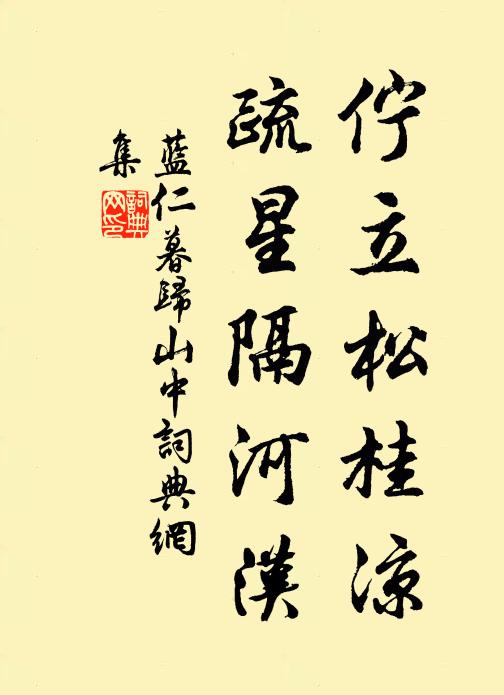 佇立松桂凉
疏星隔河漢
藍仁暮歸山中詞典網
集
詞典網印